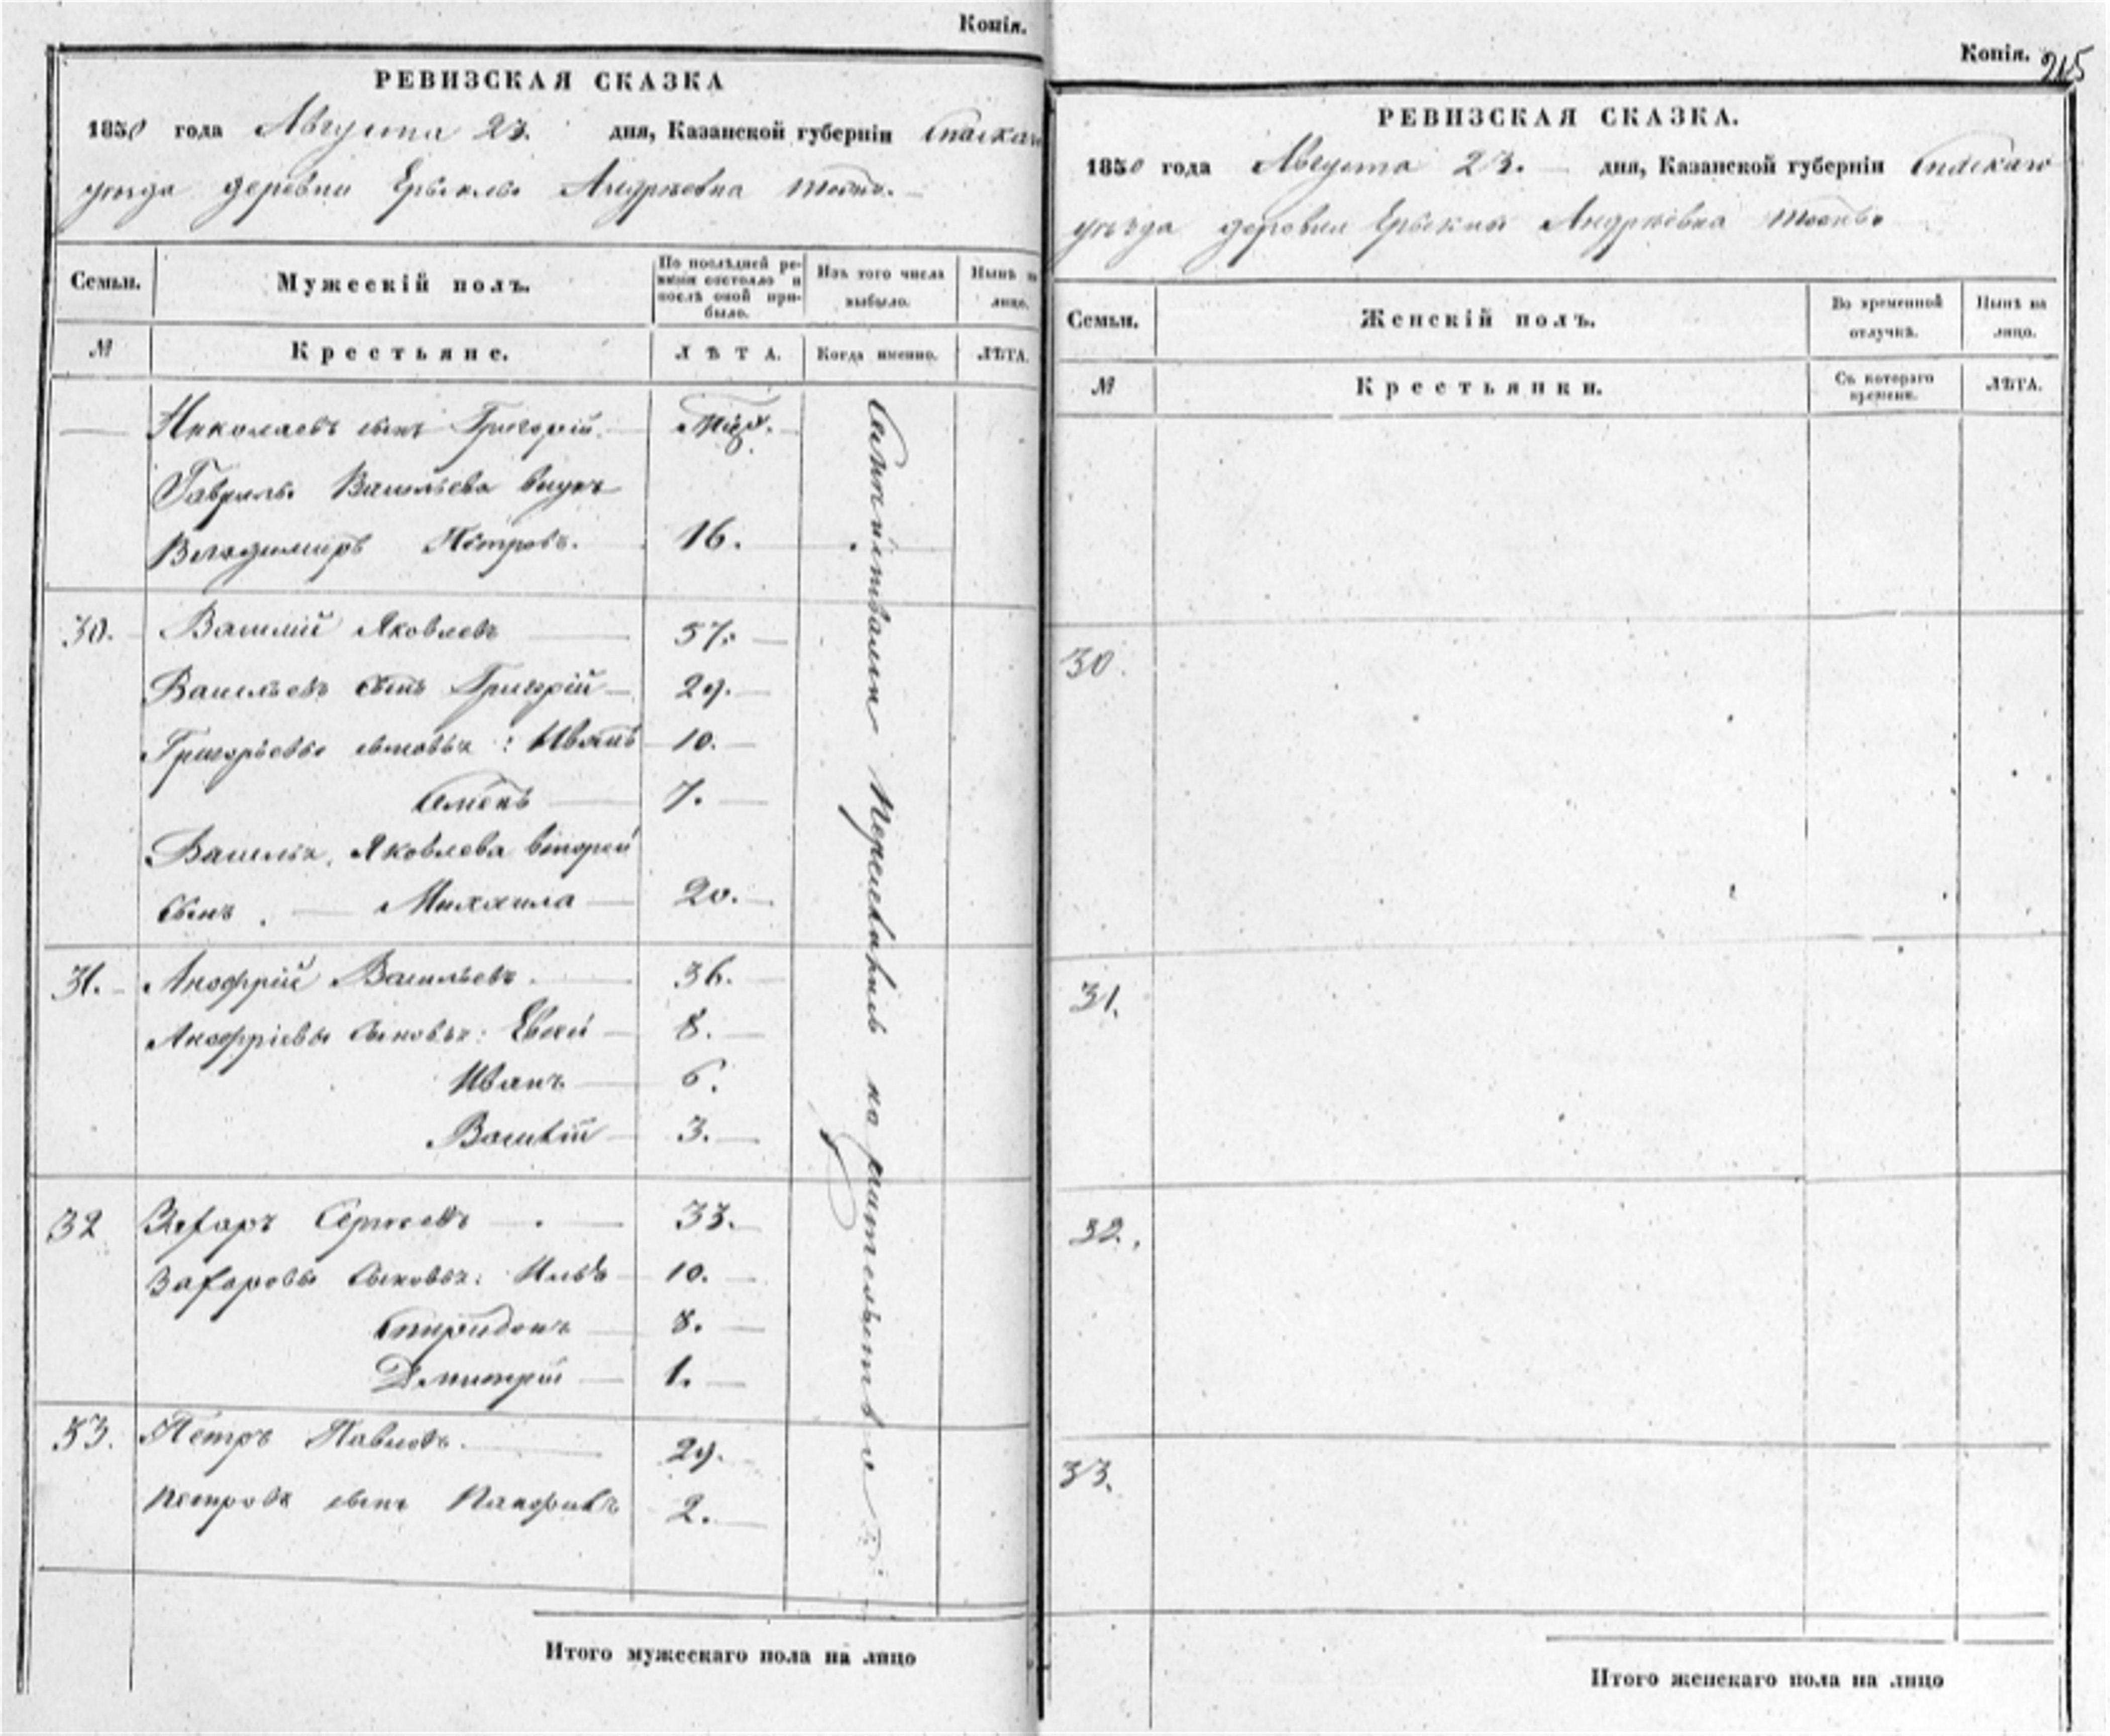 Копія.
РЕВИЗСКАЯ СКАЗКА
1850 года Августа 23. дня, Казанской губерніи Спаскаго
уѣзда деревни Ерыклы Андрѣевка тожъ.
Семьи. Мужескій полъ. По послѣдней ревизіи состояло и послѣ оной прибыло. Изъ того числа выбыло. Нынѣ на лицо.
№ Крестьяне. ЛѢТА. Когда именно. ЛѢТА.
Николаевъ сынъ Григорій
Гаврилы Васильева внукъ
Владимиръ Петровъ. 16.
30. Василій Яковлевъ 57.
Васильевъ сынъ Григорій 29.
Григорьевы сыновья: Иванъ 10.
Семенъ 7.
Василья Яковлева второй
сынъ Михаила 20.
31. Анофрій Васильевъ. 36.
Анофріевы сыновья: 8.
Иванъ 6.
Василій 3.
32 Захаръ Сергѣевъ 33.
Захаровы сыновья: Илья 10.
Спиридонъ 8.
Дмитрій 1.
33. Петръ Павловъ. 29.
Петровъ сынъ Панфилъ 2.
на жительство
Итого мужескаго пола на лицо
Копія. 215
РЕВИЗСКАЯ СКАЗКА.
1850 года Августа 23. дня, Казанской губерніи Спаскаго
уѣзда деревни Ерыклы Андрѣевка тожъ
Семьи. Женскій полъ. Во временной отлучкѣ. Нынѣ на лицо.
№ Крестьянки. Съ котораго времени. ЛѢТА.
30.
31.
32.
33.
Итого женскаго пола на лицо